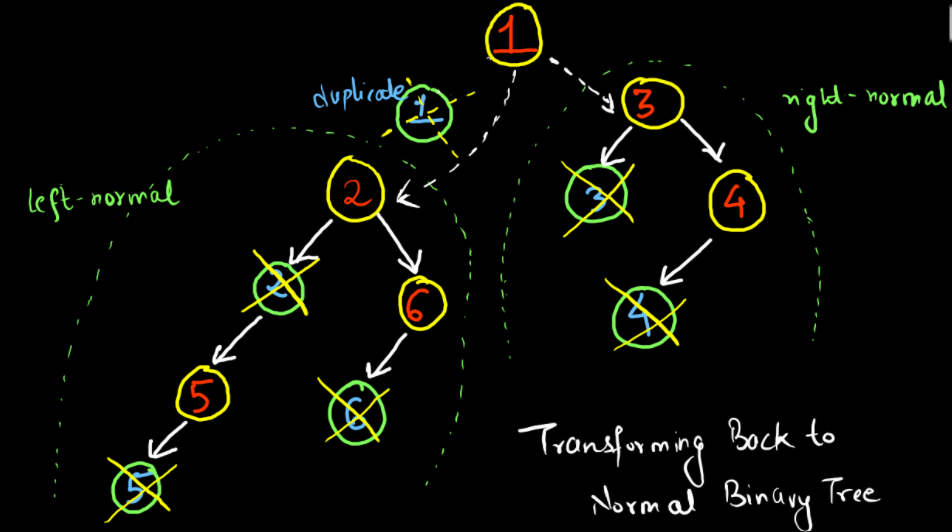 1
duplicate
1
3
right-normal
left-normal
2
3
4
2
6
4
5
6
5
Transforming Back to
Normal Binary Tree